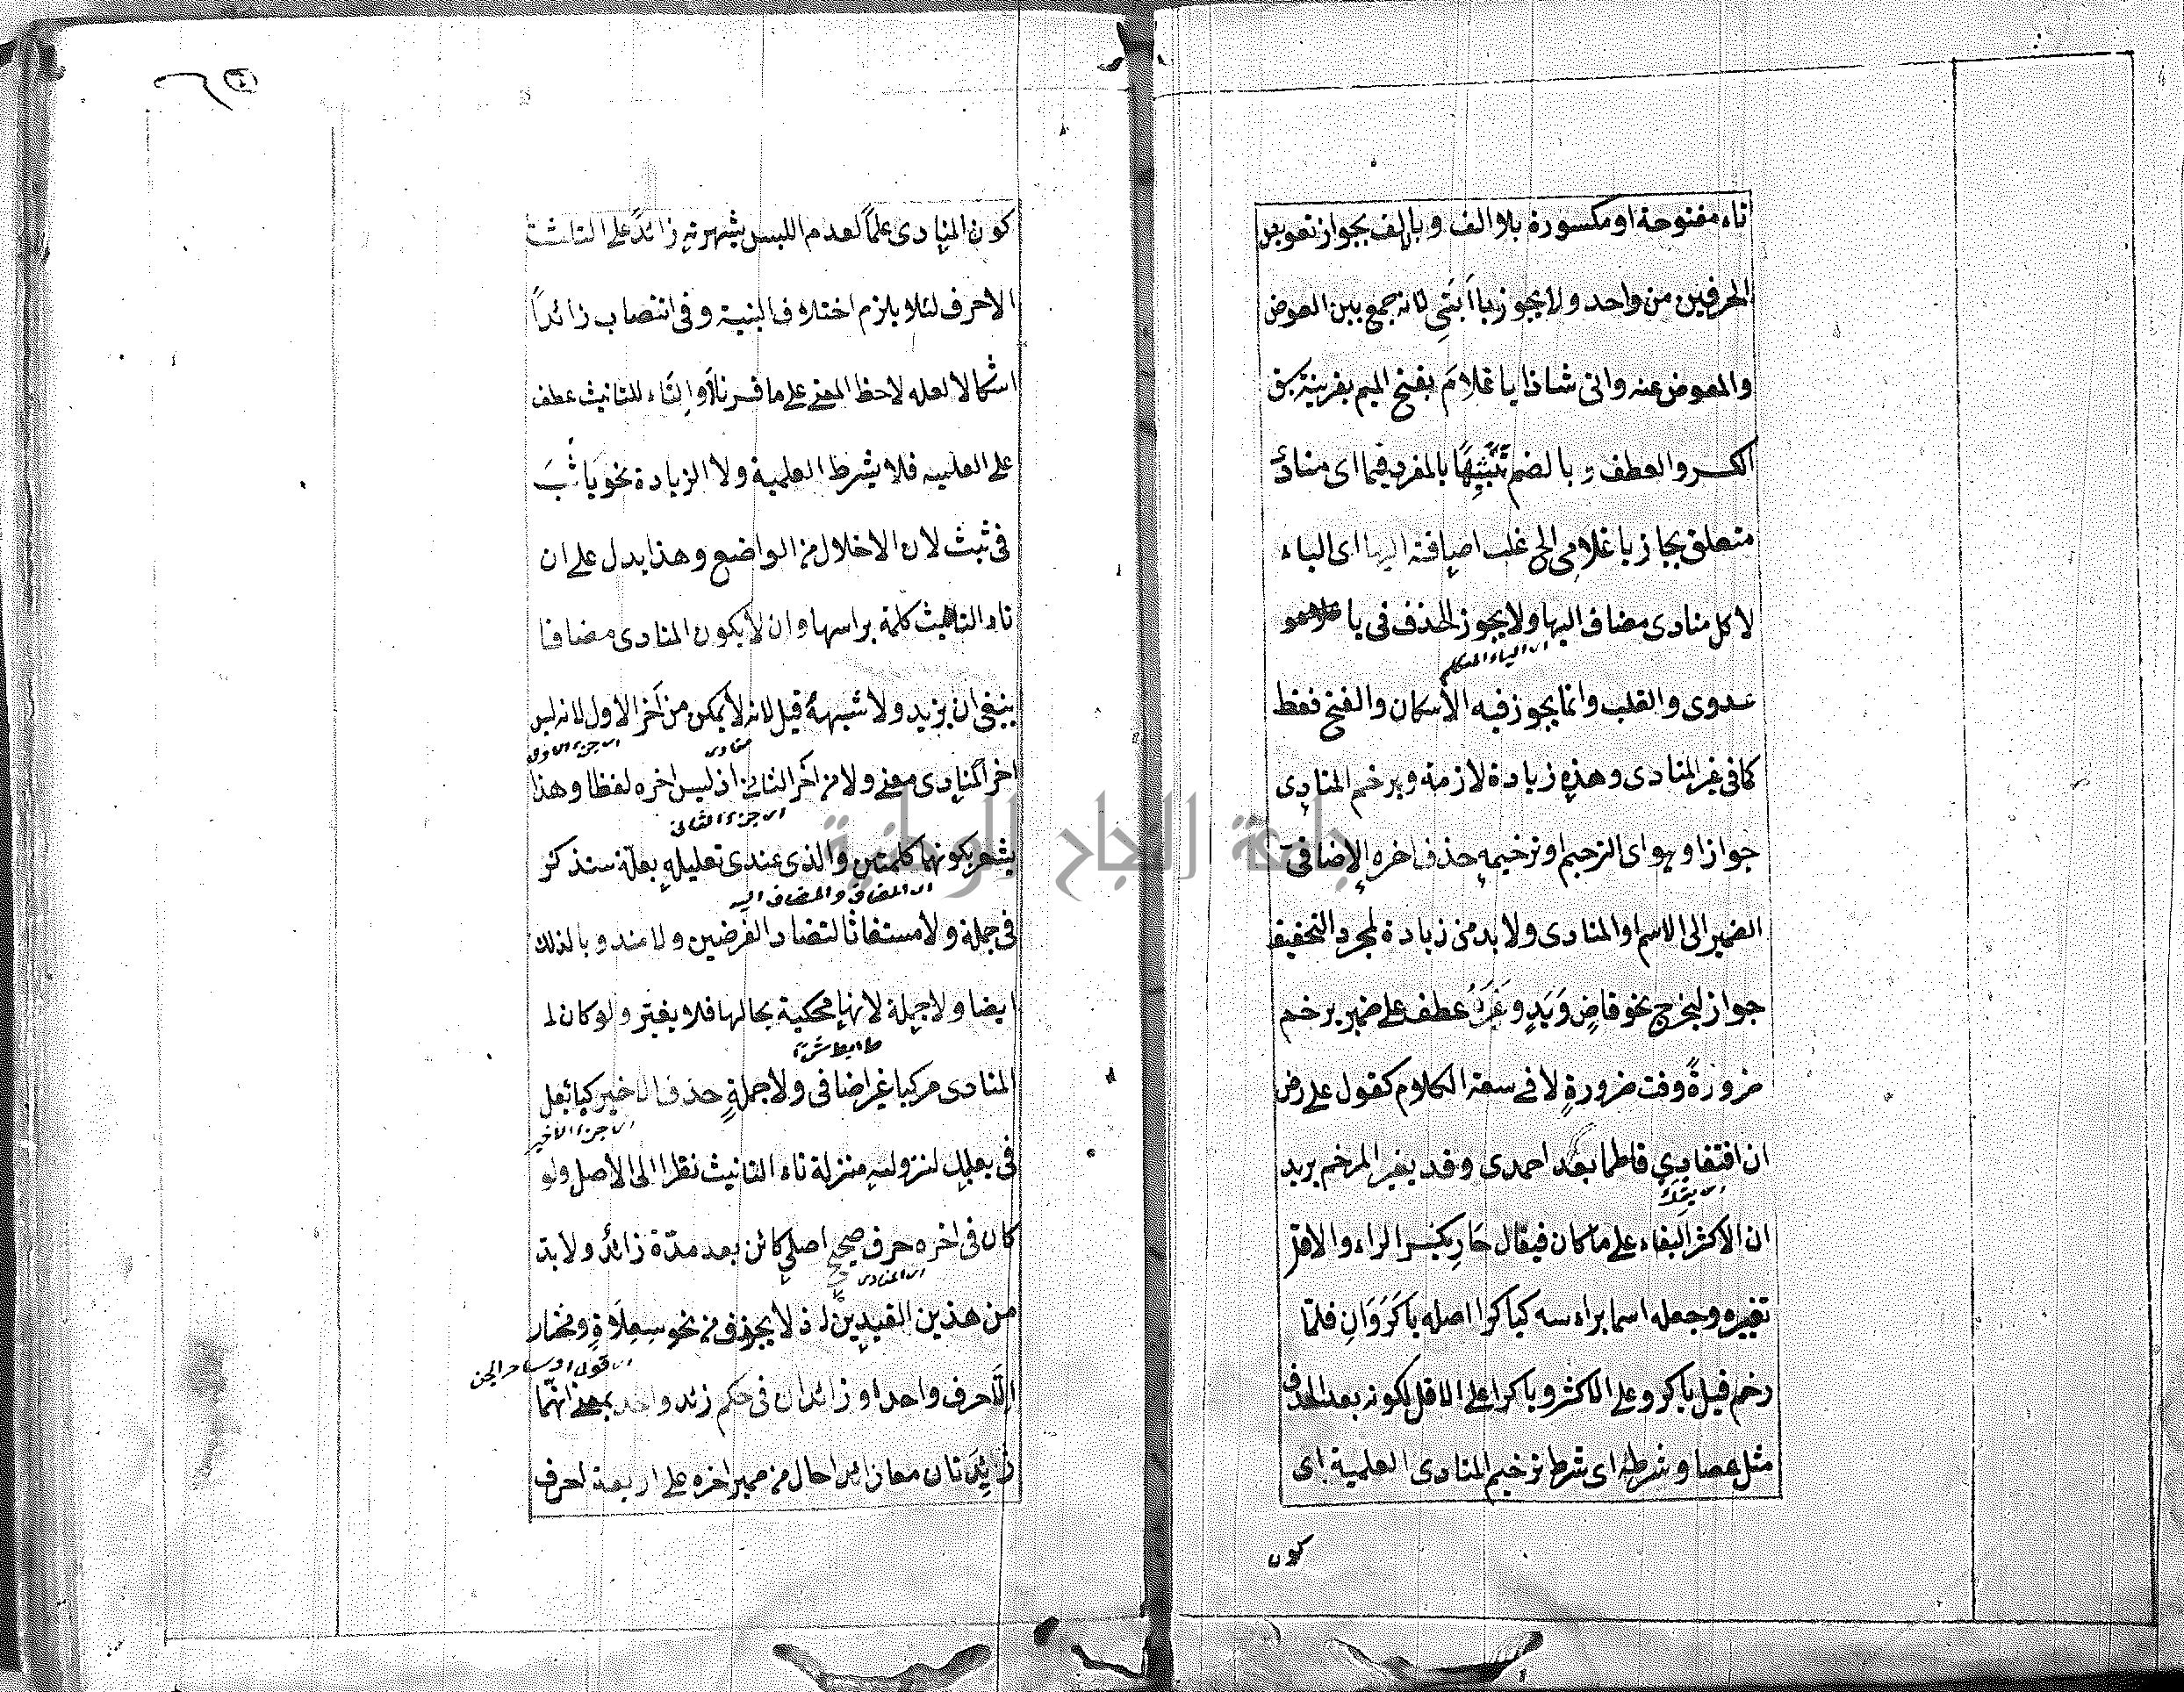 تاء مفتوحة او مكسورة بلا الف وبالف بجواز تعويض
الحرفين من واحد ولا يجوز يا ابتي لانه جمع بين العوض
والمعوض عنه واتى شاذا يا غلامَ بفتح الميم بقرينة سبق
الكسر والعطف وبالضم تشبيهًا بالمفرد فيما اى منادى
متعلق بجاز يا غلامى الخ غلب اضافته اليها اى الياء
لا كل منادى مضاف اليها ولا يجوز الحذف فى يا
اى الياء المتكلم
عدوى والقلب وانما يجوز فيه الاسكان والفتح فقط
كما فى غير المنادى وهذه زيادة لازمة ويرخم المنادى
جوازا وهو اى الترخيم او ترخيمه حذف اخره الاضافى
الضمير الى الاسم او المنادى ولا بد من زيادة لمجرد التخفيف
جواز ليخرج نحو قاضٍ ويَدٍ وغيره عطف على ضمير يرخم
ضرورةً وقت ضرورةٍ لا فى سعة الكلام كقول على رض
ان افتقادى فاطما بعد احمدى وقد يغير المرخم يريد
ان الاكثر البقاء على ما كان فيقال حَارِ بكسر الراء والاقل
تغييره وجعله اسما براءسه كيا كرا اصله يا كَرَوَانِ فلمّا
رخم قيل يا كرو على الاكثر ويا كرا على الاقل لكونه بعد الحذف
مثل عصا وشرطه اى شرط ترخيم المنادى العلمية اى
كون
كون المنادى علمًا لعدم اللبس بشهرته زائدًا على الثلثة
الاحرف لئلا يلزم اختلاف البنية وفى انتصاب زائدًا
اشكالا لعله لاحظ المعنى على ما قررنا او التاء للتانيث عطف
على العلمية فلا يشرط العلمية ولا الزيادة نحو يا ثُبَ
فى ثبت لان الاخلال من الواضع وهذا يدل على ان
تاء التانيث كلمة براسها وان لا يكون المنادى مضافا
ينبغى ان يزيد ولا شبههُ قيل لانه لا يمكن من آخر الاول لانه ليس
منادى اى جزء الاول
اخر المنادى معنى ولا من آخر الثانى اذ ليس اخره لفظا وهذا
اى جزء الثانى
يشعر بكونهما كلمتين والذى عندى تعليله بعلة ستذكر
اى المضاف والمضاف اليه
فى جملة ولا مستغاثًا لتضاد الغرضين ولا مندوبا لذلك
ايضا ولا جملة لانها محكية بحالها فلا يغير ولو كان
المنادى مركبا غير اضافى ولا جملةٍ حذف الاخير كيا بعل
اى جزء الاخير
فى بعلبك لنزوله منزلة تاء التانيث نظرا الى الاصل ولو
كان فى اخره حرف صحيح اصلى كائن بعد مدّة زائد ولا بد
اى المنادى
من هذين القيدين اذ لا يحذف من نحو سِعلَاةٍ ومختار
الّا حرف واحد او زائدان فى حكم زائد واحد بمعنى انهما
زايدتان معا زائد حال من ضمير اخره على اربعة احرف